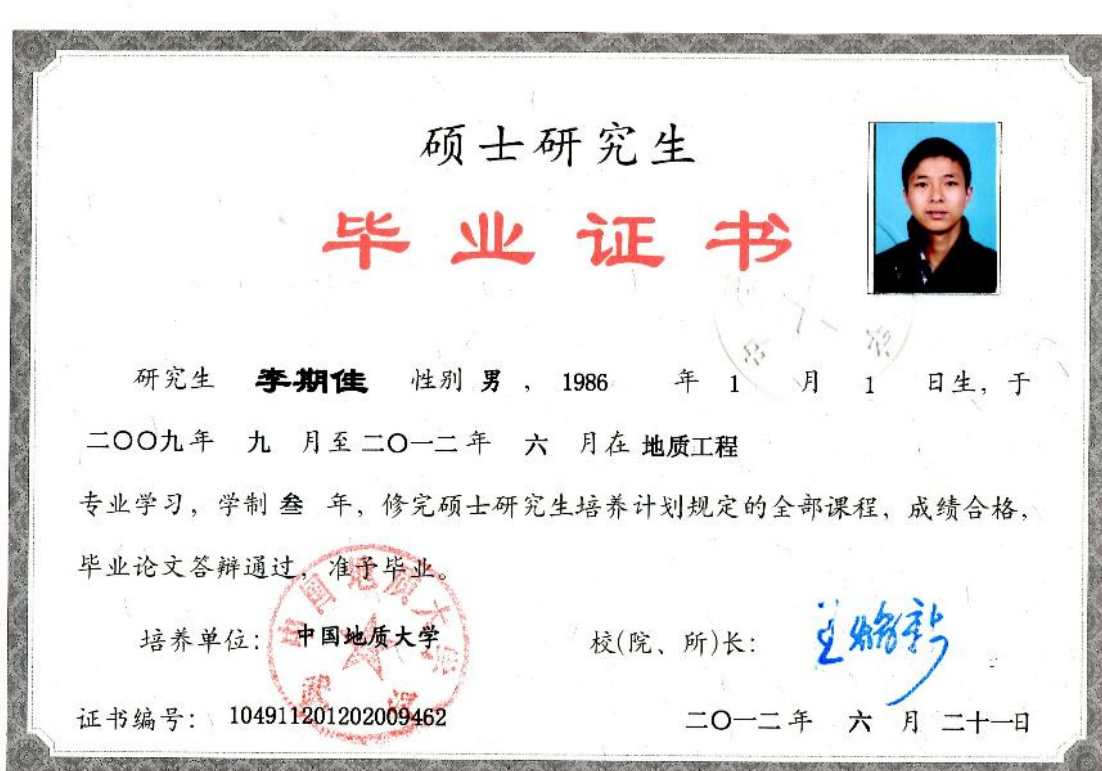 硕士研究生
毕业证书
研究生 李期佳 性别 男 , 1986 年 1 月 1 日生, 于
二〇〇九年 九 月至二〇一二年 六 月在 地质工程
专业学习, 学制 叁 年, 修完硕士研究生培养计划规定的全部课程, 成绩合格,
毕业论文答辩通过, 准予毕业。
中国地质大学
培养单位: 中国地质大学 校(院、所)长:
证书编号: 104911201202009462 二〇一二年 六 月 二十一日